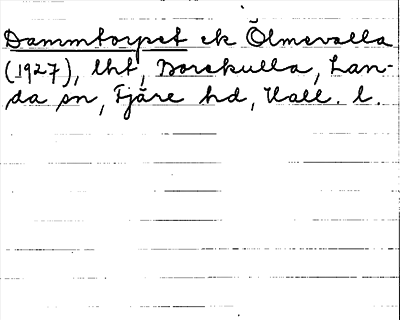 Dammtorpet ek Ölmevalla
(1927), lht, Borekulla, Lan-
da sn, Fjäre hd, Hall. l.